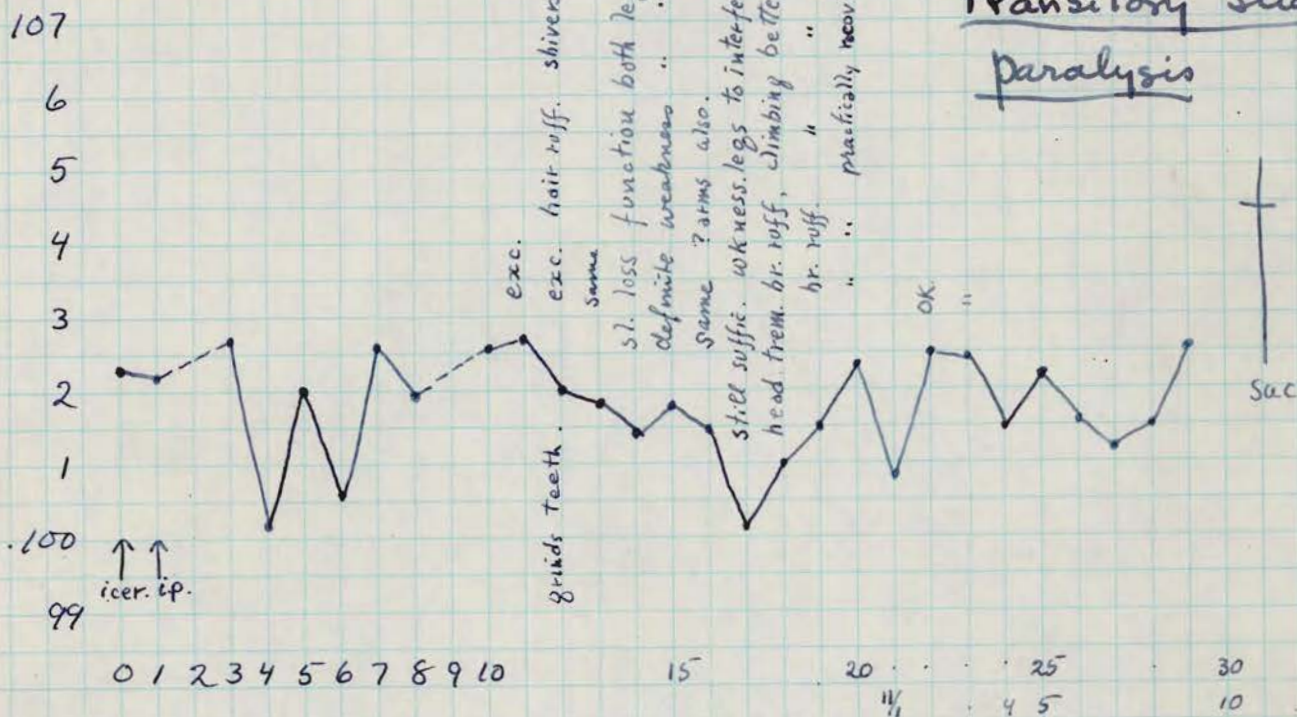 Transitory
paralysis
107
6
5
4
3
2
1
.100
99
icer. ip.
grinds teeth.
exc.
exc. hair ruff. shiver
same
sl. loss function both
definite weakness " "
same ? arms also.
still suffic. wkness. legs to
head trem. br. ruff, climbing
br. ruff. " "
" " practically
OK
"
Sac
0 1 2 3 4 5 6 7 8 9 10 15 20 25 30
11/1 4 5 10